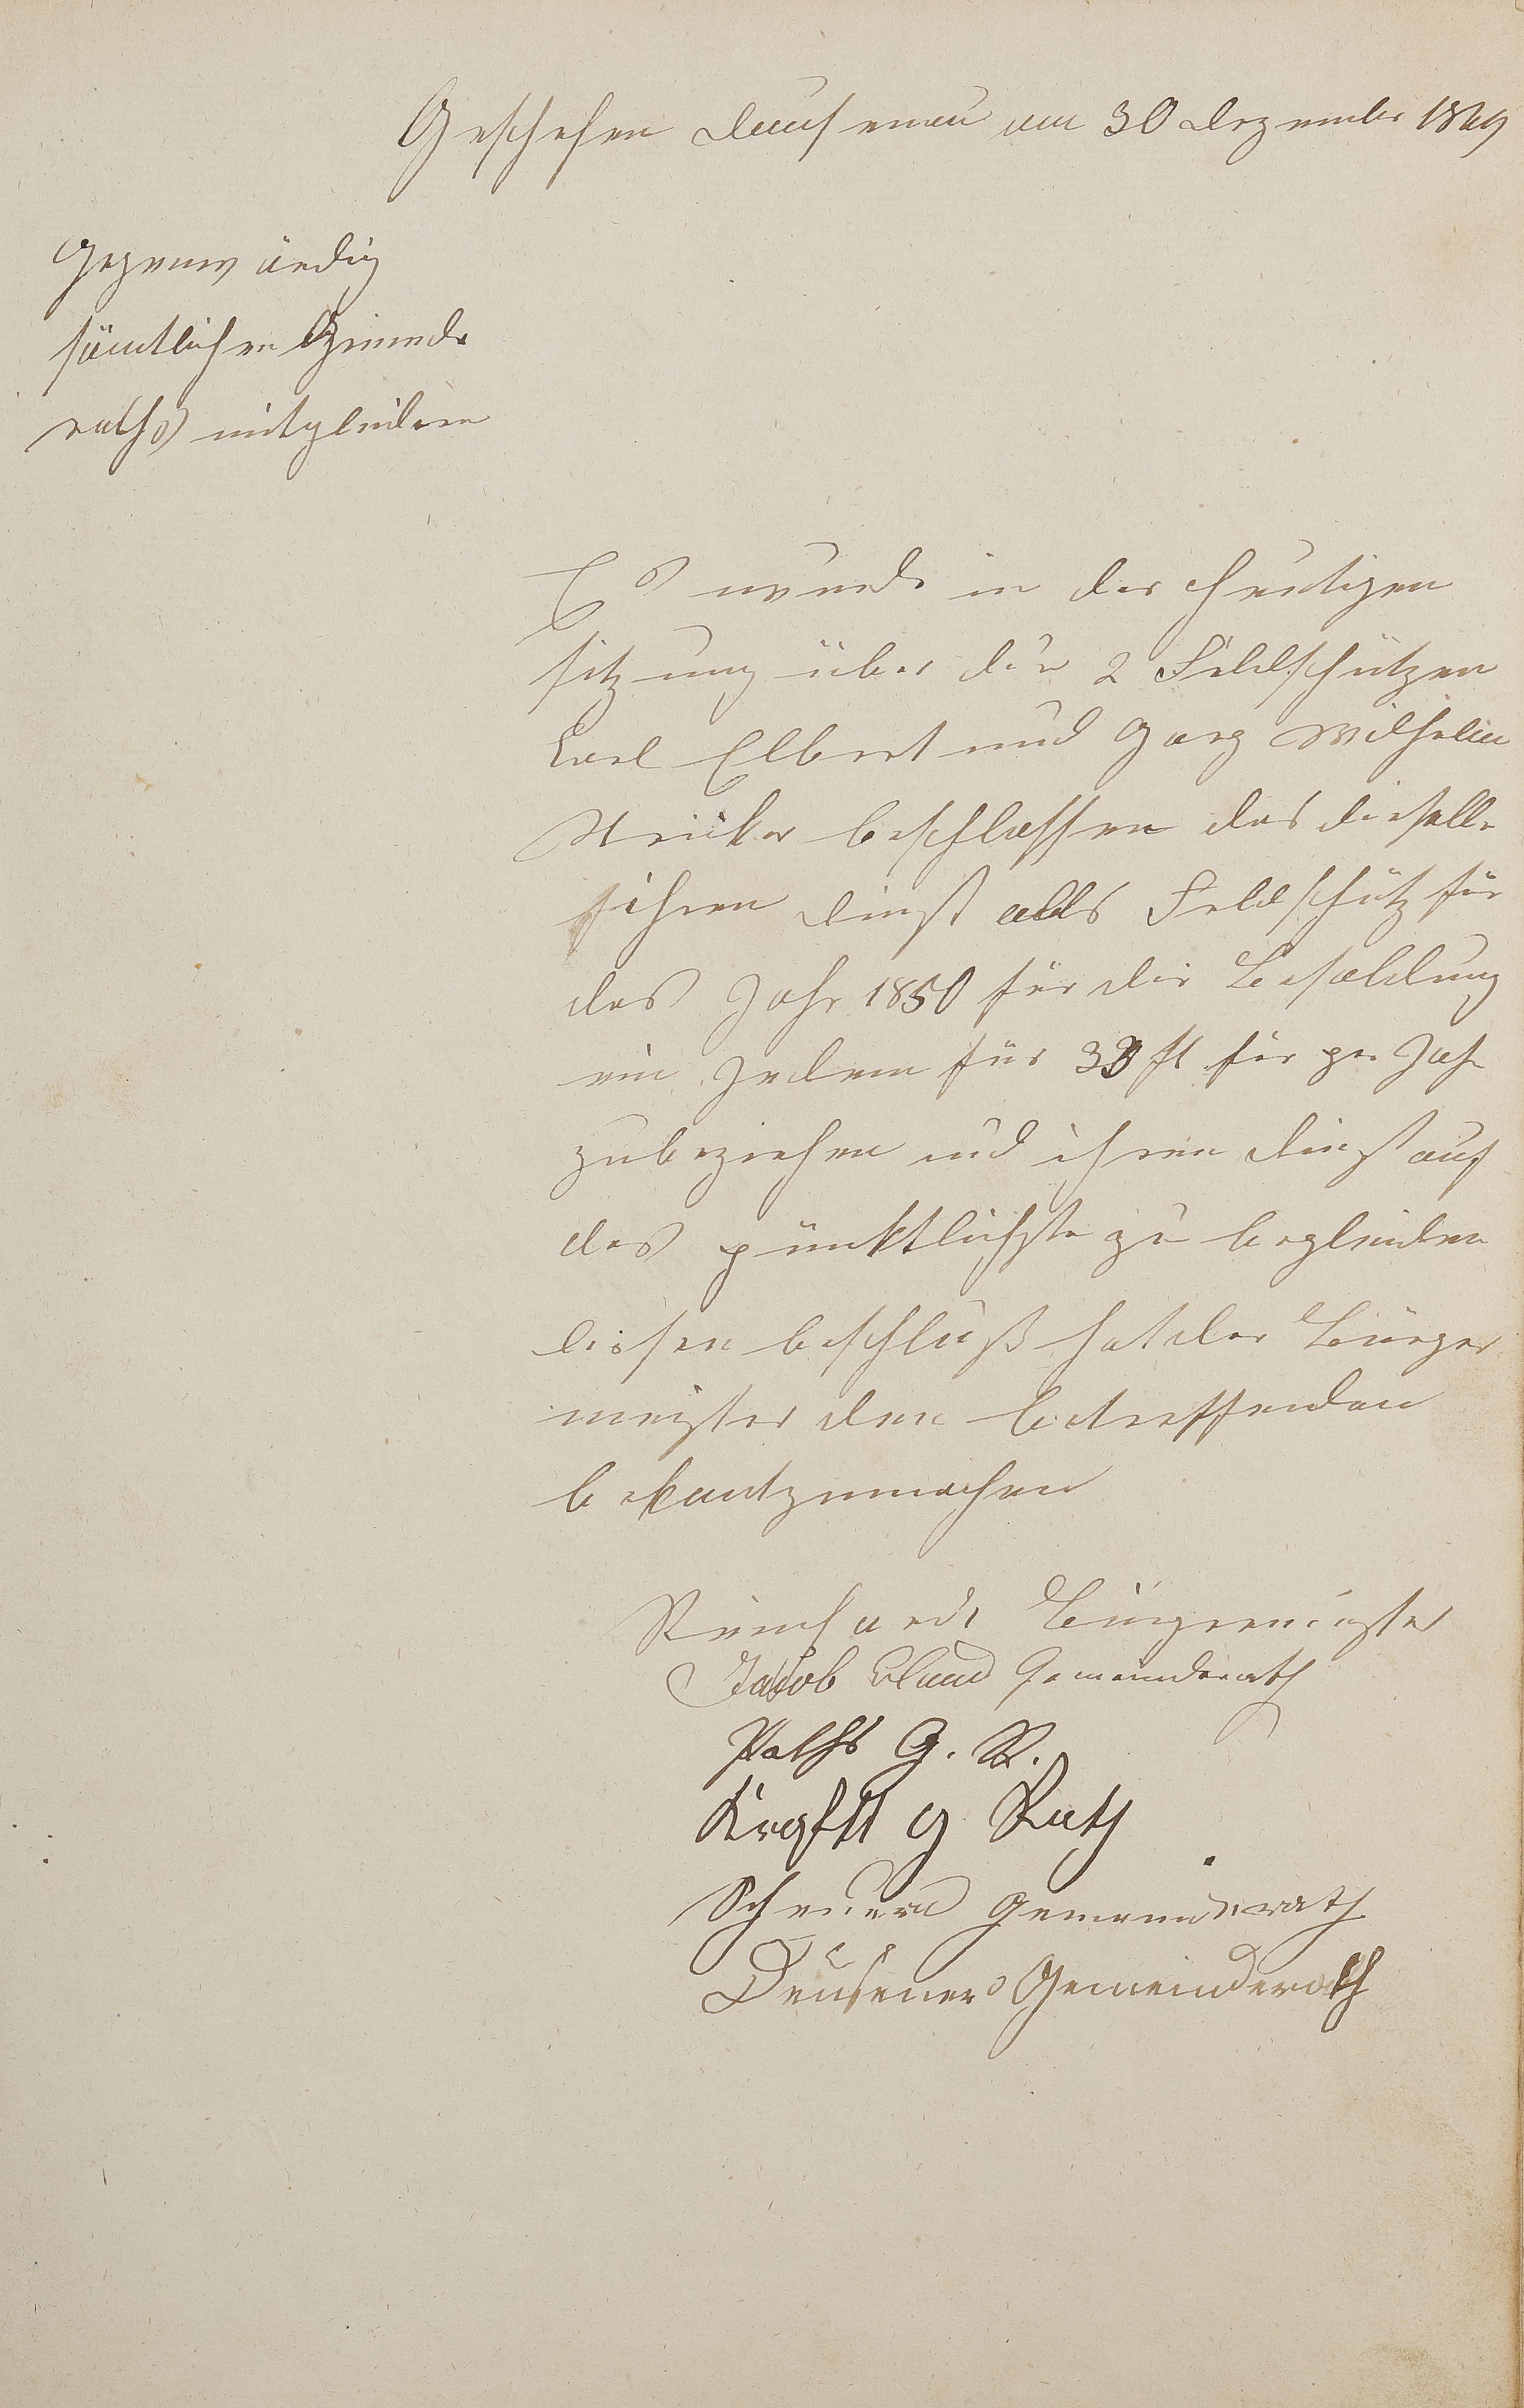 Geschehen Dausenau am 30 Dezember 1849
Gegenwärdig
sämtlichen Gemeinde
raths mitglieder
Es wurde in der heutigen
sitzung über die 2 Feldschützen
Carl Elbert und Gorg Wilhelm
beschlossen das dieselbe
ihren Dinst alls Feldschütz für
das Jahr 1850 für die Besoldung
ein Jedem für 33 fl für per Jahr
zubeziehen und ihren Dinst auf
das pünktlichste zu begleiden
diesen beschluß hat der Bürger
meister den betreffenden
bekantzumachen
Bürgermeister
Jacob Gemeinderath
G. R.
Krafft g Rath
Scheuern Gemeinderath
Deusener Gemeinderath